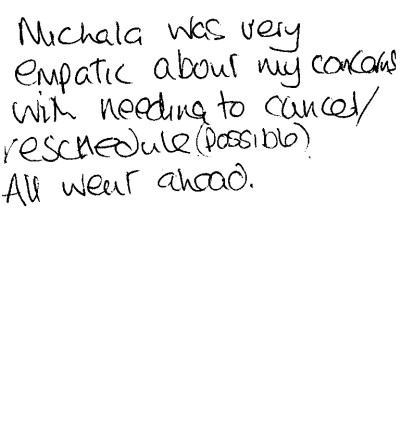 Michala was very
empatic about my concerns
with needing to cancel/
reschedule (possible)
All went ahead.